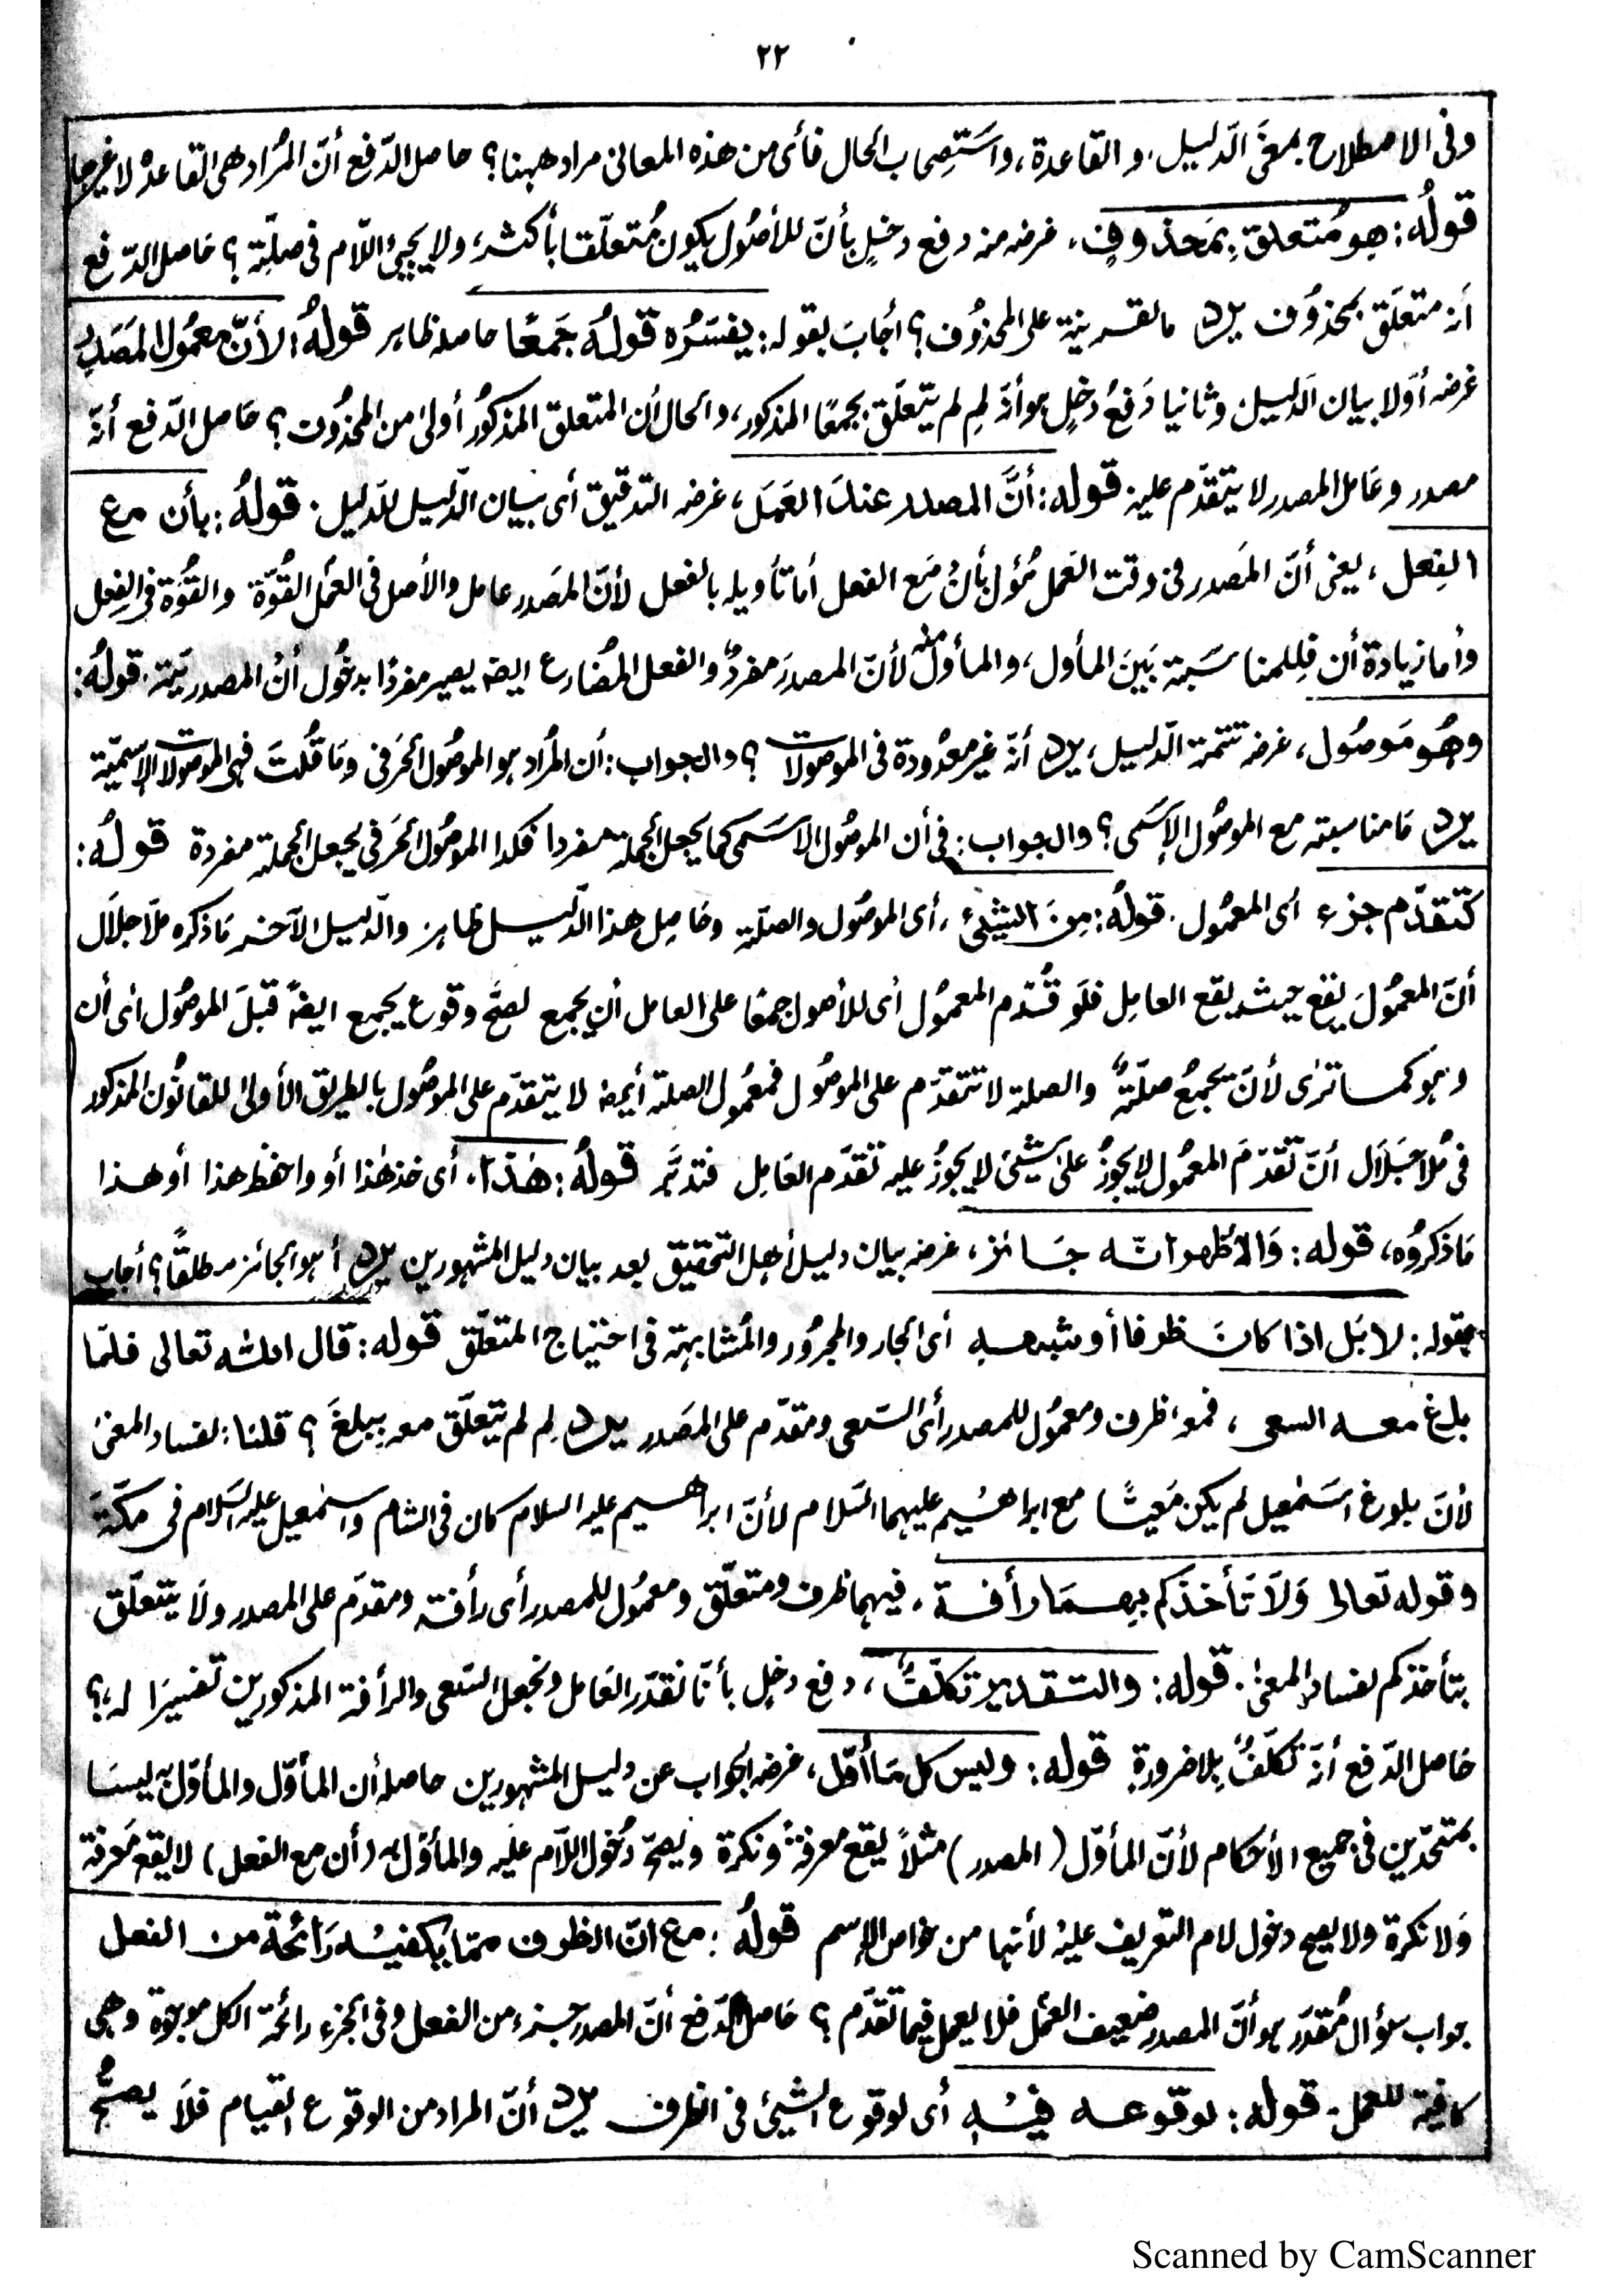 ٢٢
وفى الاصطلاح بمعنَى الدّليل، و القاعدة، واستَصِحاب الحال فأى من هذه المعانى مراد ههنا؟ حاصل الدّفع أنّ المُراد هى القاعدة لا غيرها
قولُه: هو مُتعلقٌ بِمَحذوفٍ، غرضه منه دفع دخلٍ بأنّ للأصُول يكون مُتعلّقا بأكثر، ولا يجيئ اللّام فى صلّته؟ حَاصل الدّفع
أنه متعلّق بمحذوُف يرد ما لقرينة على المحذوُف؟ أجابَ بقوله: يفسّرُه قولُه جَمعًا حاصله ظاهر قولُه: لأنّ معمُول المَصَدرِ
غرضه أوّلا بيان الدّليل وثانيا دَفعُ دخلٍ هو أنّه لِم لم يتعلّق بجمعًا المذكور، والحال أن المتعلق المذكوُر أولىٰ من المحذوُف؟ حَاصل الدّفع أنّه
مصدر وعَامل المصدر لا يتقدّم عليه قوله: أنَّ المصدر عندَ العَمَل، غرضه التدقيق أى بيان الدّليل للدّليل. قولهُ: بأن مع
الفِعل، يعنى أنّ المَصدر فى وقت العَمل مُؤل بأنْ مَع الفعل أما تأويله بالفعل لأنّ المَصدر عامل والأصل فى العمَل القُوّة والقُوّة فى الفِعل
وأما زيادة أن فِللمناسَبة بَينَ المأول، والمأول منه لأنّ المصدرَ مفردٌ والفعل المُضارع ايضًا يصير مفردًا بدخُول أنْ المصدريّة. قولُهُ:
وهُو مَوصُول، غرضه تتمة الدّليل، يرد أنّه غير معدُودة فى الموصولات؟ والجواب: أن المُراد هو الموصُول الحَرفى ومَا قُلتَ فهى الموصولات الإسميّة
يرد مَا مناسبته مع الموصُول الإسَمى؟ والجواب: فى أن الموصُول الاسَمى كما يجعل الجملة مفردا فكذا الموصُول الحَرفى يجعل الجملة مفردة قولُه:
كتقدّم جزء أى المعمُول. قولُه: مِنَ الشيئ، أى الموصُول والصلّة وحَاصِل هذا الدّليل ظاهر والدّليل الآخر مَا ذكره ملّا جلَال
أنّ المعمُولَ يقع حيث يقع العامِل فلَو قُدّم المعمُول أى للأصول جمعًا على العامل أن يجمع لصحَّ وقوع يجمع ايضًا قبلَ الموصُول أى أن
وهو كما ترٰى لأنّ يجمعُ صلّةٌ والصلة لا تتقدّم على الموصُول فمعمُول الصلة أيضًا لا يتقدّم على الموصُول بالطريق الأولىٰ للقانُون المذكور
فى مُلا جَلَال أنّ تَقدّمَ المعمُول لا يجوزُ علىٰ شيئ لا يجوزُ عليه تقدّم العَامِل فتدبّر قولُهُ: هٰذا، أى خذ هٰذا أو واحفظ هذا أو هذا
مَا ذكروُه، قوله: وَالأظهر انّه جَائز، غرضه بيان دليل أهل التحقيق بعد بيان دليل المشهورين يرد أ هو الجائز مطلقًا؟ أجاب
بقوله: لا بَل اذا كانَ ظرفا أو شبهه أى الجار والمجرُور والمُشابهة فى احتياج المتعلّق قوله: قال الله تعالى فلمّا
بلغ معه السعى، فمع ظرف ومعمُول للمصدر أى السّعى ومتقدّم على المَصدر يرد لِم لم يتعلّق معه بِبلغَ؟ قلنا: لفساد المعنىٰ
لأنّ بلوغ اسَمٰعيل لم يكن مَعيتًا مع ابراهيم عليهما السّلام لأنّ ابراهيم عليه السلام كان فى الشام واسمٰعيل عليه السَلام فى مكّة
وقوله تعالى وَلَا تَأخذكم بهمَا رأفة، فبهما ظرف ومتعلّق ومعمُول للمصدر أى رأفة ومقدّم على المصدر ولَا يتعلّق
بتأخذكم لفساد المعنىٰ. قوله: والتقدير تكلّفٌ، دفع دخل بأنّا نقدّر العَامل ونجعل السّعى والرأفة المذكورين تفسيرًا له؟
حَاصل الدّفع أنّه تكلّفٌ بِلا ضرورة قوله: وليس كل مَا أوّل، غرضه الجواب عن دليل المشهورين حاصله أن المأوّل والمأوّل به ليسَا
بمتحّدين فى جميع الأحكام لأنّ المأوّل (المصدر) مثلاً يقع معرفةً ونكرة ويصحّ دُخول اللّام علَيه والمأوّل به (أن مع الفعل) لا يقع مَعرفة
وَلا نكرة ولا يصح دخول لام التعريف عليهْ لأنها من خواص الإسم قولُه: مع انّ الظرف ممّا يكفيه رَائحة من الفعل
جواب سؤال مُقدّر هو أنّ المصدر ضعيف العمَل فلا يعمل فيما تقدّم؟ حَاصل الدّفع أنّ المصدر جزء من الفعل وفى الجزء رائحة الكل موجودة وهى
كافية للعمل. قوله: لوقوعه فيْه أى لوقوع الشيئ فى الظرف يرد أنّ المراد من الوقوع القيام فلَا يصحُّ
Scanned by CamScanner